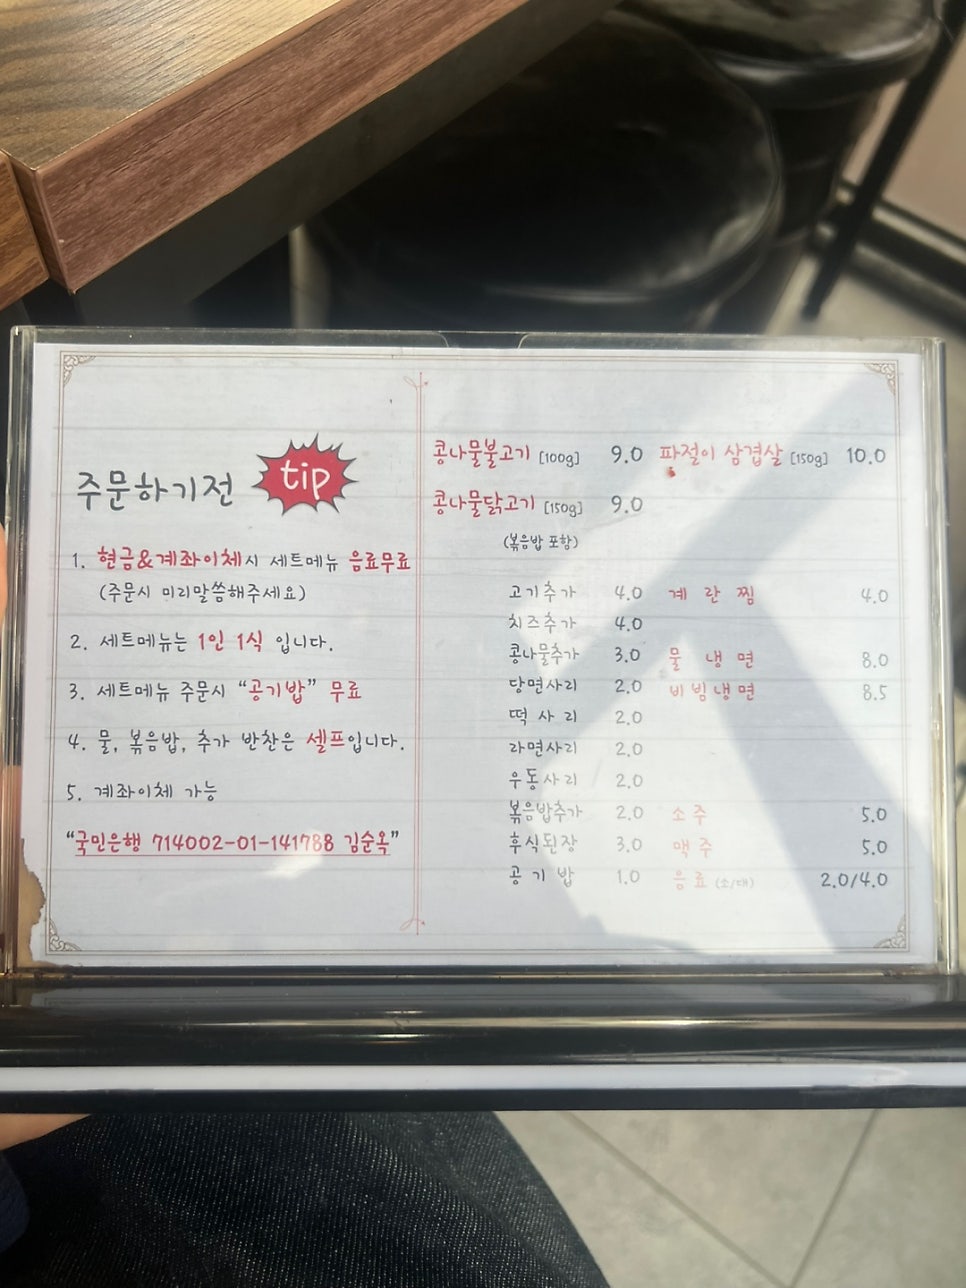 주문하기전 tip
1. 현금&계좌이체시 세트메뉴 음료무료
(주문시 미리말씀해주세요)
2. 세트메뉴는 1인 1식 입니다.
3. 세트메뉴 주문시 "공기밥" 무료
4. 물, 볶음밥, 추가 반찬은 셀프입니다.
5. 계좌이체 가능
"국민은행 714002-01-141788 김순옥"
콩나물불고기 [100g] 9.0 파절이 삼겹살 [150g] 10.0
콩나물닭고기 [150g] 9.0
(볶음밥 포함)
고기추가 4.0 계란찜 4.0
치즈추가 4.0
콩나물추가 3.0 물냉면 8.0
당면사리 2.0 비빔냉면 8.5
떡사리 2.0
라면사리 2.0
우동사리 2.0
볶음밥추가 2.0 소주 5.0
후식된장 3.0 맥주 5.0
공기밥 1.0 음료 (소/대) 2.0/4.0